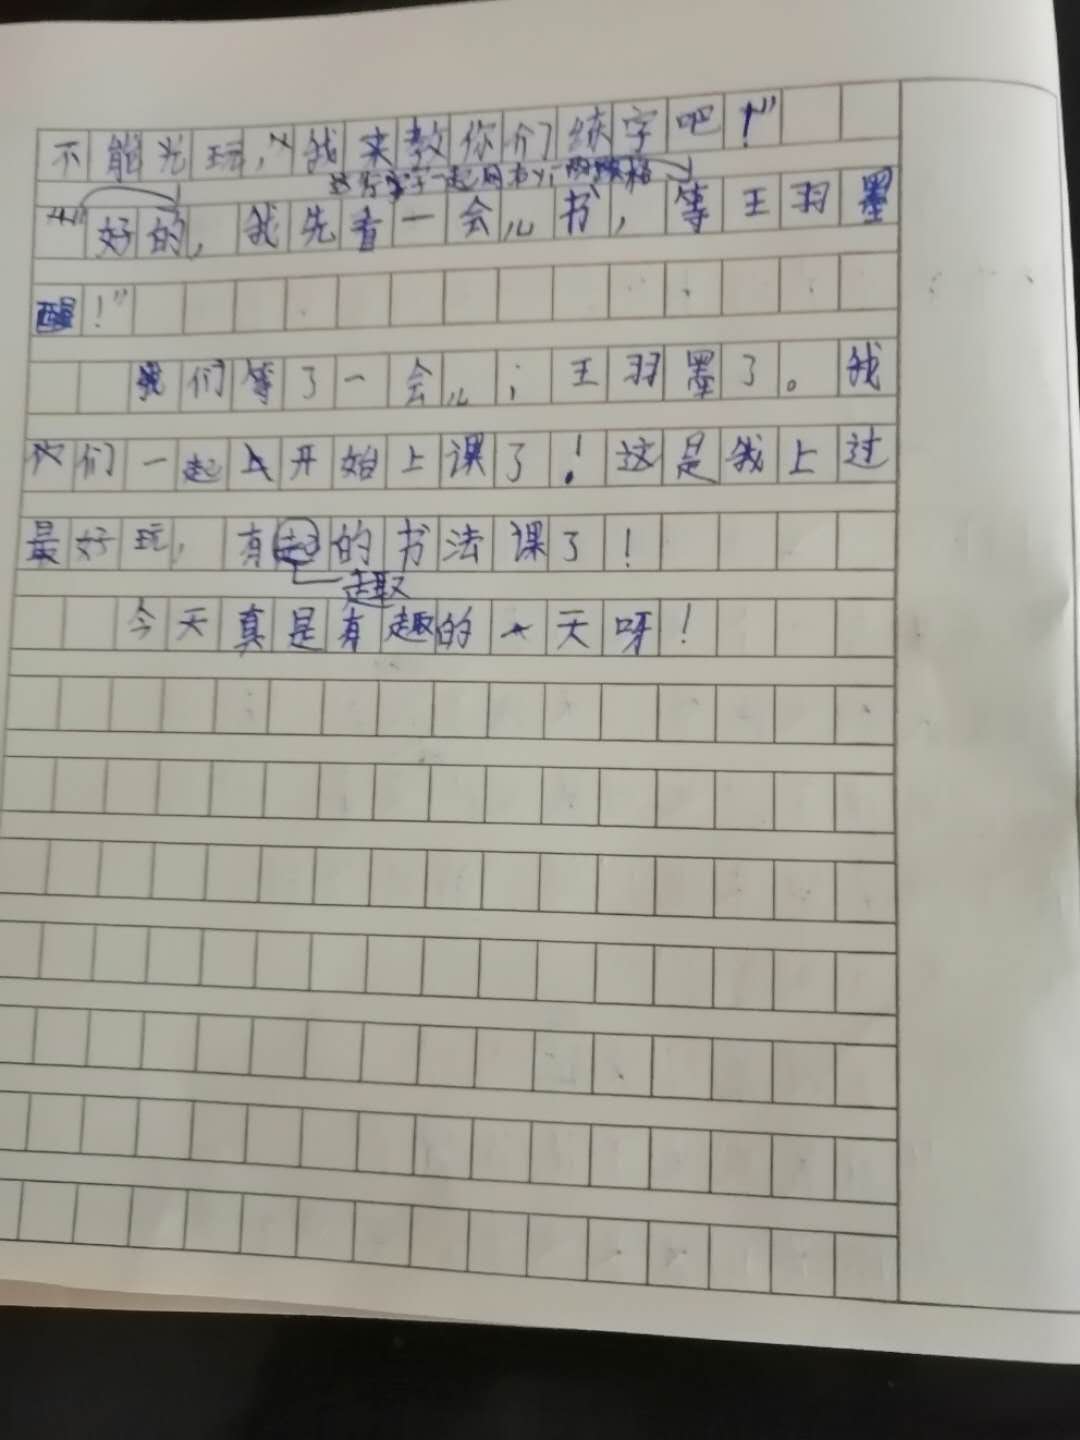 不能光玩,“我来教你们练字吧!”
这行字一起网右
“好的,我先看一会儿书,等王羽墨
醒!”
我们等了一会儿;王羽墨了。我
们一起开始上课了!这是我上过
最好玩,有起的书法课了!
趣
今天真是有趣的一天呀!